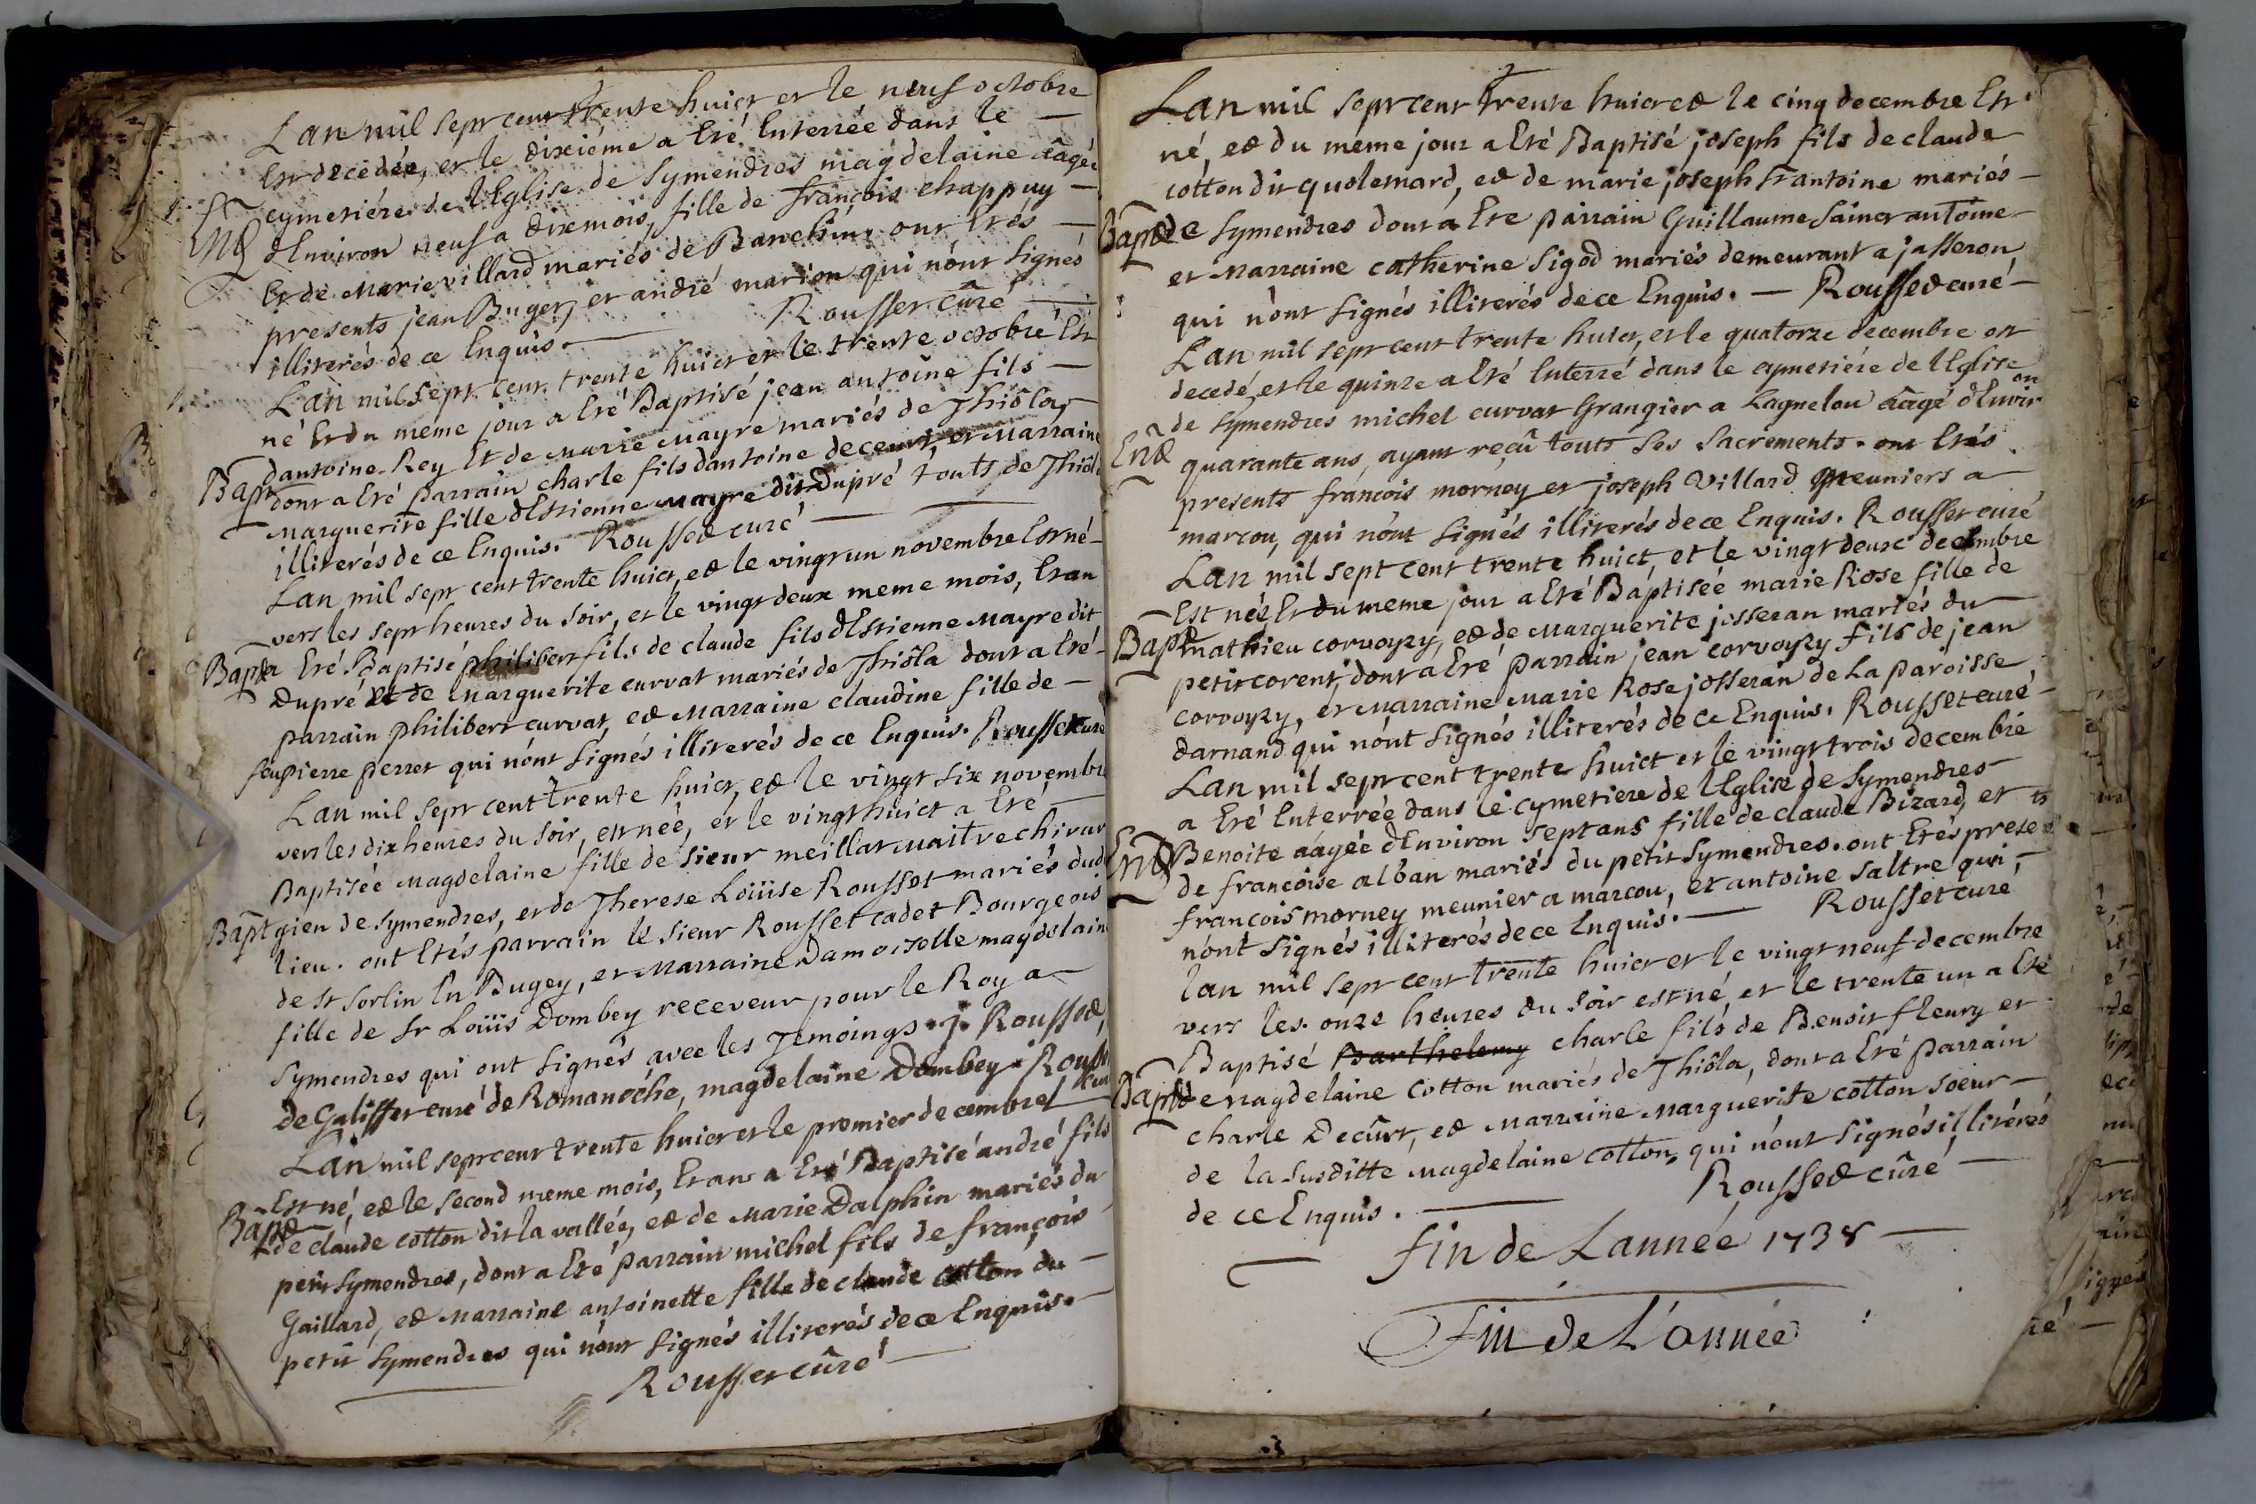 Lan mil sept cent trente huict et le neuf octobre
Est decedée, et le dixiéme a Eté Enterrée dans le
cymetiére de l'Eglise de Symendres magdelaine aagée
Ent
dEnviron neuf a dix mois, fille de françois chappuy
Et de Marie villard mariés de Banchin, ont Etés
presents jean Buger, et andré marion qui n'ont signés
illiterés de ce Enquis. Rousset curé
Lan mil sept cent trente huict et le trente octobre Est
né Et du meme jour a Eté Baptisé jean antoine fils
Bapt
dantoine Rey Et de Marie Mayre mariés de Thiôla,
dont a Eté parrain charle fils dantoine deceurt, et Marraine
Marguerite fille dEstienne Mayre dit Dupré touts de Thiôla
illiterés de ce Enquis. Rousset curé
Lan mil sept cent trente huict, et le vingt un novembre Est né
vers les sept heures du soir, et le vingt deux meme mois, Et an
Bapt
a Eté Baptisé philibert fils de claude fils dEstienne Mayre dit
Dupré et de Marguerite curvat mariés de Thiôla dont a Eté
parrain philibert curvat, et Marraine claudine fille de
feu pierre perret qui n'ont signés illiterés de ce Enquis. Rousset curé
Lan mil sept cent trente huict, et le vingt six novembre
vers les dix heures du soir, est née, et le vingt huict a Eté
Baptisée Magdelaine fille de sieur meillat Maitre chirur
Bapt
gien de Symendres, et de Therese Loüise Rousset mariés dud
lieu. ont Etés parrain le sieur Rousset cadet Bourgeois
de St Sorlin En Bugey, et Marraine Damoiselle magdelaine
fille de Sr Loüis Dombey receveur pour le Roy a
Symendres qui ont signés avec les Temoings. j. Rousset,
de Galisset curé de Romanéche, magdelaine Dombey. Rousset
curé
Lan mil sept cent trente huict et le premier decembre
Est né, et le second meme mois, Et an a Eté Baptisé andré fils
Bapt
de claude cotton dit la vallée, et de Marie Dalphin mariés du
petit Symendres, dont a Eté parrain michel fils de françois
Gaillard, et Marraine antoinette fille de claude cotton du
petit Symendres qui n'ont signés illiterés de ce Enquis.
Rousset curé
Lan mil sept cent trente huict et le cinq decembre Est
né, et du meme jour a Eté Baptisé joseph fils de claude
cotton dit quolemard, et de marie joseph St antoine mariés
Bapt
de Symendres dont a Ete pairrain Guillaume Sainct antoine
et Marraine catherine Sigod mariés demeurant a jasseron,
qui n'ont signés illiterés de ce Enquis. Rousset curé
Lan mil sept cent trente huict, et le quatorze decembre est
decedé, et le quinze a Eté Enterré dans le cymetiére de l'Eglise
de Symendres michel curvat Grangier a Lagnelou aagé dEnviron
Ent
quarante ans, ayant reçû touts ses sacrements. ont Etés
presents françois morney et joseph Villard meuniers a
marcou, qui n'ont signés illiterés de ce Enquis. Rousset curé
Lan mil sept cent trente huict, et le vingt deux decembre
Est née Et du meme jour a Eté Baptisée marie Rose fille de
Bapt
mathieu corvoysy, et de Marguerite josseran mariés du
petit corent, dont a Eté parrain jean corvoysy fils de jean
corvoysy, et Marraine Marie Rose josseran de La paroisse
darnand qui n'ont signés illiterés de ce Enquis. Rousset curé
Lan mil sept cent trente huict et le vingt trois decembre
a Eté Enterrée dans le cymetiere de l'Eglise de Symendres
Ent
Benoite aagée dEnviron sept ans fille de claude Bizard, et
de francoise alban mariés du petit Symendres. ont Etés presents
francois morney meunier a marcou, et antoine saltre qui
n'ont signés illiterés de ce Enquis. Rousset curé
lan mil sept cent trente huict et le vingt neuf decembre
vers les onze heures du soir est né, et le trente un a Eté
Baptisé Barthelemy charle fils de Benoit fleury et
Bapt
de Magdelaine cotton mariés de Thiôla, dont a Eté parrain
charle Decûrt, et Marraine Marguerite cotton soeur
de la susditte Magdelaine cotton, qui n'ont signés illiterés
de ce Enquis. Rousset curé
fin de Lannée 1738
Fin de L'année